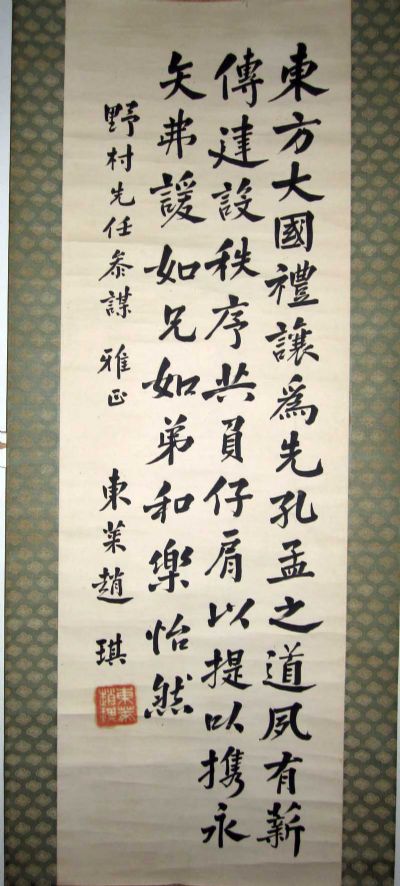 東方大國禮讓爲先孔孟之道夙有薪
傳建設秩序共負仔肩以提以携永
矢弗諼如兄如弟和樂怡然
野村先任叅謀 雅正 東萊趙琪
東萊趙琪